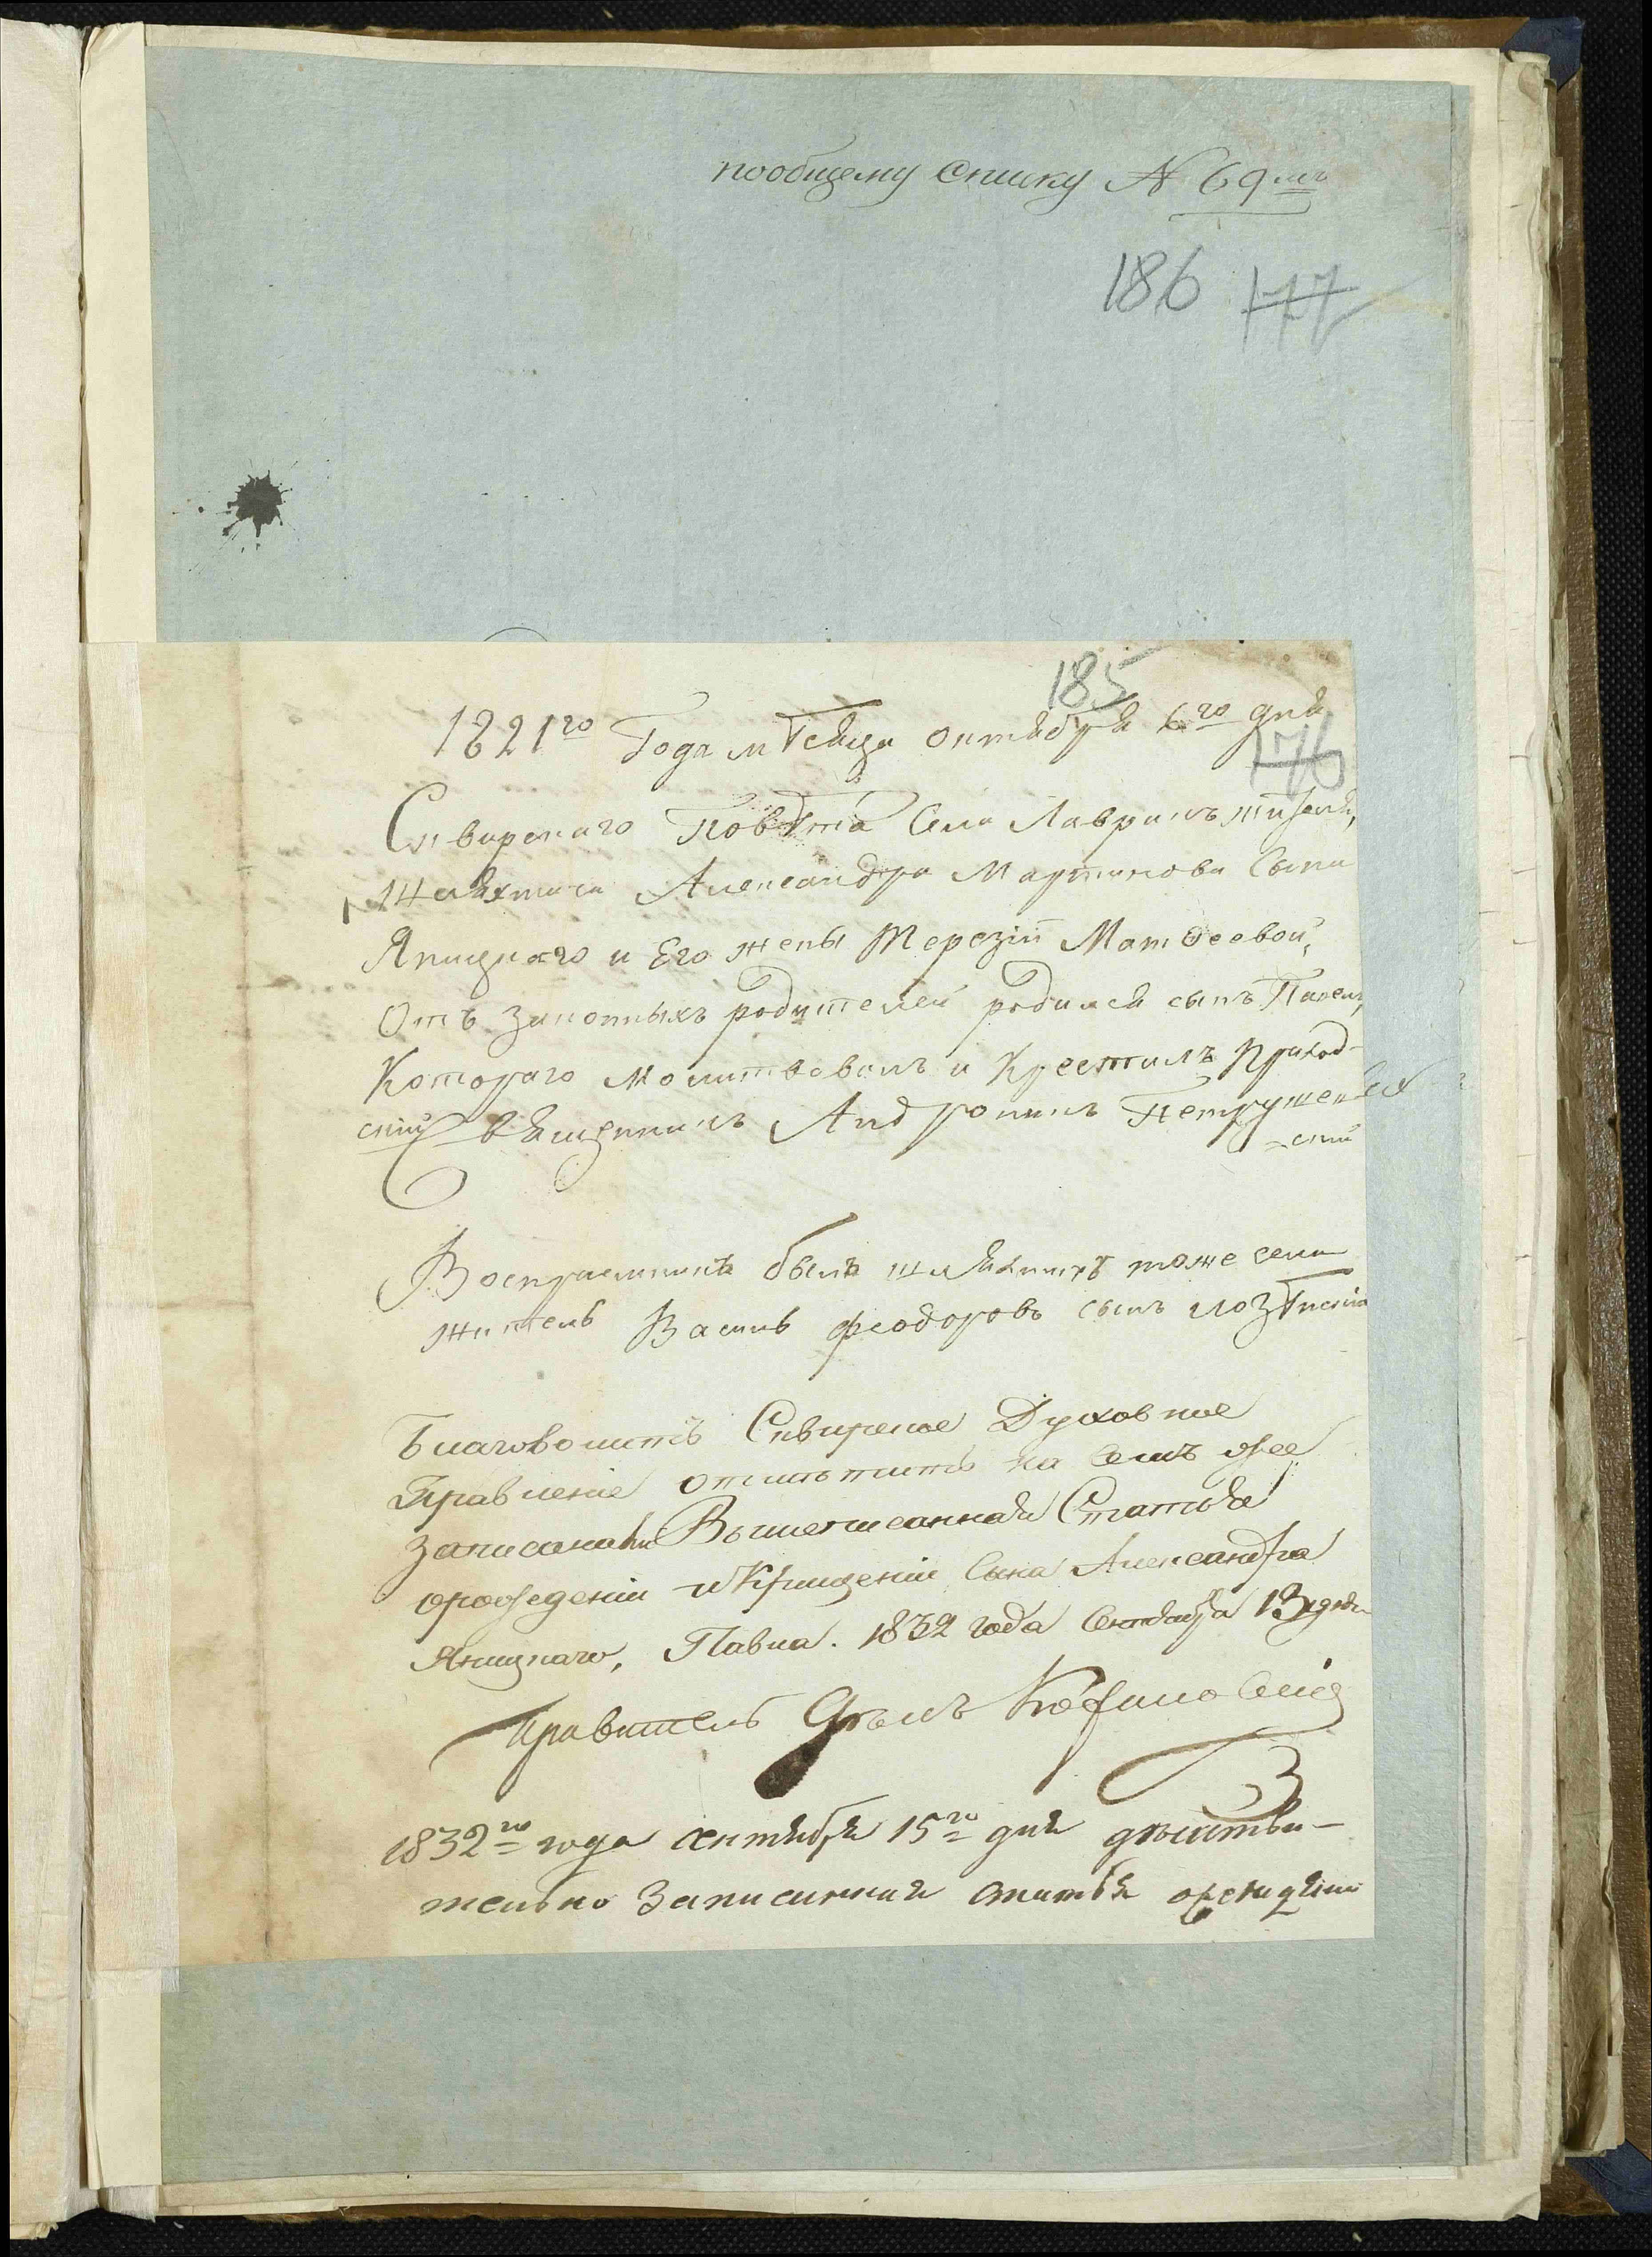 пообщему списку № 69мъ
186 177
185
1821го Года мѣсяца октября 6го дня
176
Сквирскаго Повѣта Села Лаврикъ жителя,
Шляхтича Александра Мартинова Сына
Яницкаго и Его жены Терезіи Матѳеевой,
Отъ законныхъ родителей родился сынъ Павелъ,
Котораго молитвовалъ и Крестилъ приход-
скій Священникъ Андроникъ Петрушев-
скій
Воспріемникъ былъ шляхтичъ тоже села
житель Василь Феодоровъ сынъ
Благоволитъ Сквирское Духовное
Правленіе отмѣтить на семъ же
записана ли Вышеписанная Статья
орождении и Крещеніи Сына Александра
Яницкаго, Павла. 1832 года Сентября 13 дня
Правитель Дѣлъ
1832го года сентября 15го дня дѣйстви-
тельно Записанная статья орождении